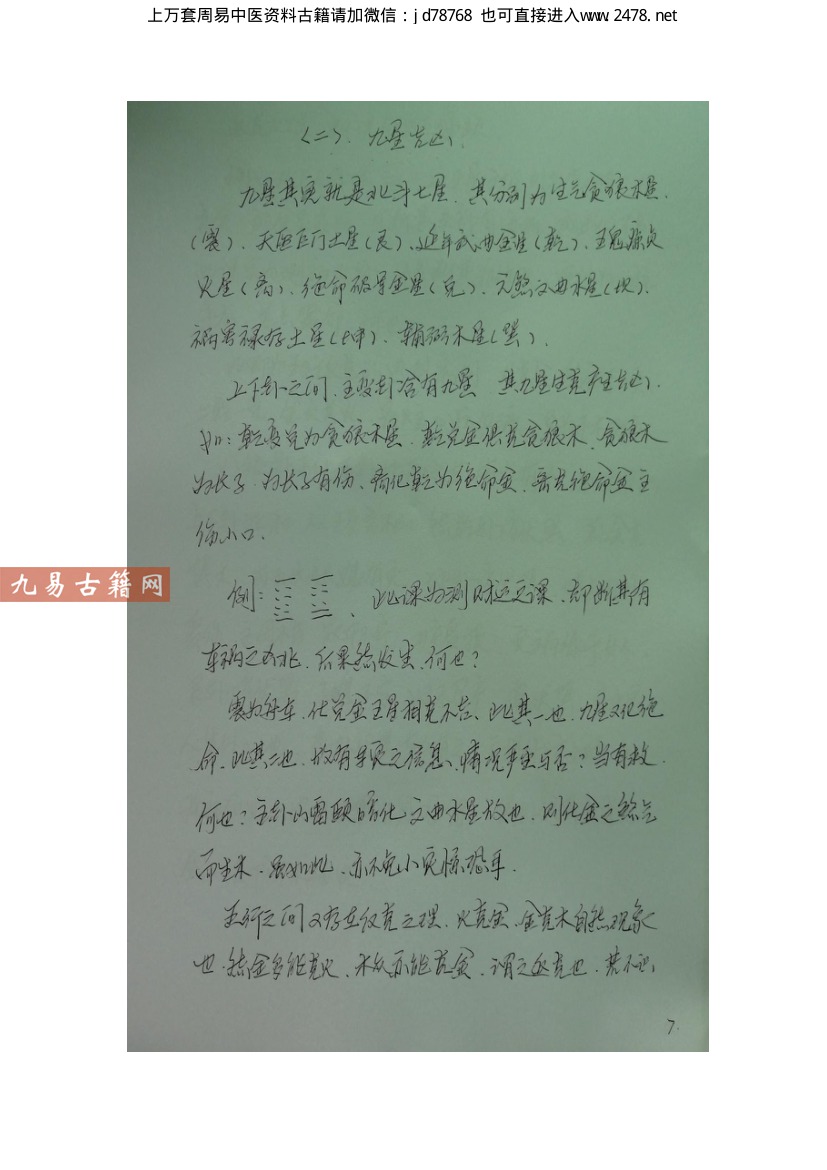 上万套周易中医资料古籍请加微信：jd78768 也可直接进入www.2478.net
〈二〉. 九星吉凶
九星其实就是北斗七星. 其分别为生气贪狼木星.
(震). 天医巨门土星(艮). 延年武曲金星(乾). 廉贞
火星(离). 绝命破军金星(兑). 六煞文曲水星(坎).
祸害禄存土星(坤). 辅弼木星(巽).
上下卦之间. 主变卦含有九星 其九星生克产生吉凶.
如: 乾变兑为贪狼木星. 乾兑金俱克贪狼木. 贪狼木
为长子. 为长子有伤. 离化乾为绝命金. 离克绝命金主
伤小口.
九易古籍网
例: 、此课为测财运之课. 却断其有
车祸之凶兆. 后果然发生. 何也?
震为车. 化兑金相克不吉、此其一也. 九星又化绝
命. 此其二也. 故有之信息. 情况严重与否? 当有救.
何也? 主卦山雷颐暗化文曲水星故也. 则化金之煞气
而生木. 虽如此. 亦不免小灾惊恐耳.
五行之间又存在反克之理. 火克金. 金克木自然现象
也. 然金多能克火. 木众亦能克金. 谓之反克也. 若不识
7.